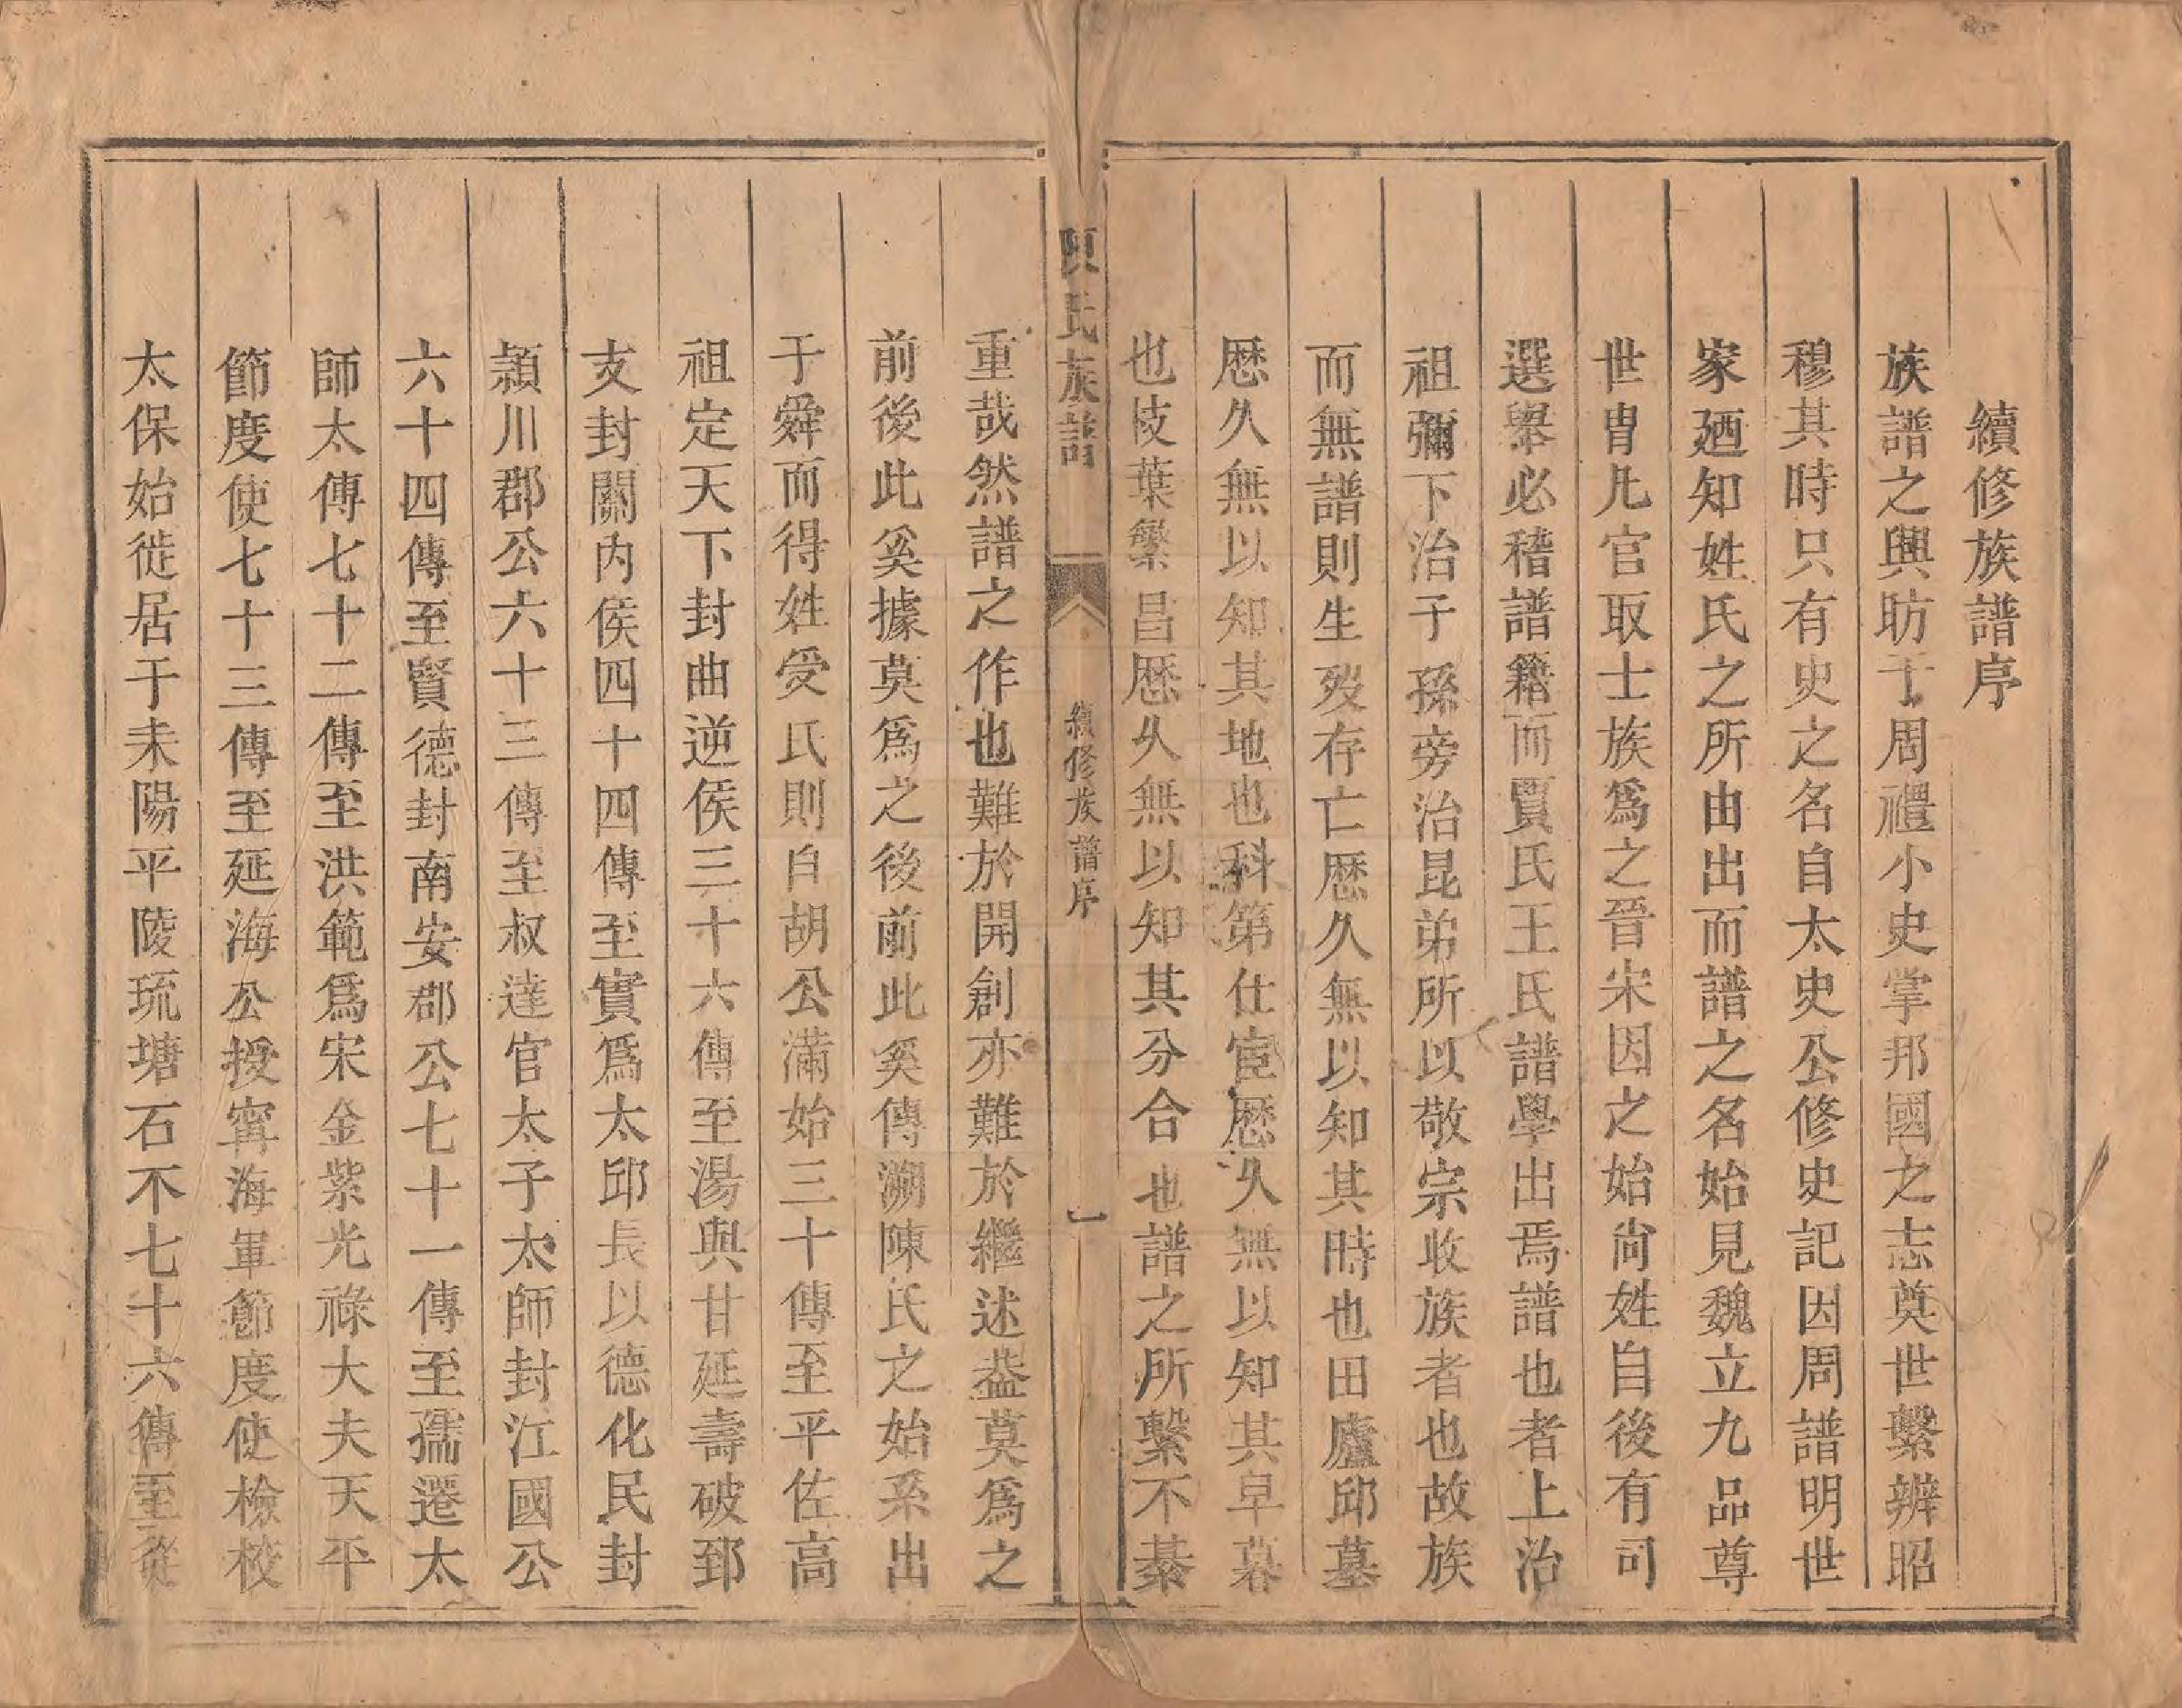 續修族譜序
族譜之興昉于周禮小史掌邦國之志奠世繫辨昭
穆其時只有史之名自太史公修史記因周譜明世
家廼知姓氏之所由出而譜之名始見魏立九品尊
世冑凡官取士族爲之晉宋因之始尙姓自後有司
選舉必稽譜籍而賈氏王氏譜學出焉譜也者上治
祖禰下治子孫旁治昆弟所以敬宗收族者也故族
而無譜則生歿存亡歷久無以知其時也田廬邱墓
歷久無以知其地也科第仕宦歷久無以知其皁暮
也枝葉繁昌歷久無以知其分合也譜之所繫不綦
陳氏族譜
續修族譜序
一
重哉然譜之作也難於開創亦難於繼述葢莫爲之
前後此奚據莫爲之後前此奚傳溯陳氏之始系出
于舜而得姓受氏則自胡公滿始三十傳至平佐高
祖定天下封曲逆侯三十六傳至湯與甘延壽破郅
支封關內侯四十四傳至實爲太邱長以德化民封
潁川郡公六十三傳至叔達官太子太師封江國公
六十四傳至賢德封南安郡公七十一傳至孺遷太
師太傅七十二傳至洪範爲宋金紫光祿大夫天平
節度使七十三傳至延海公授寗海軍節度使檢校
太保始徙居于耒陽平陵琉塘石不七十六傳至從